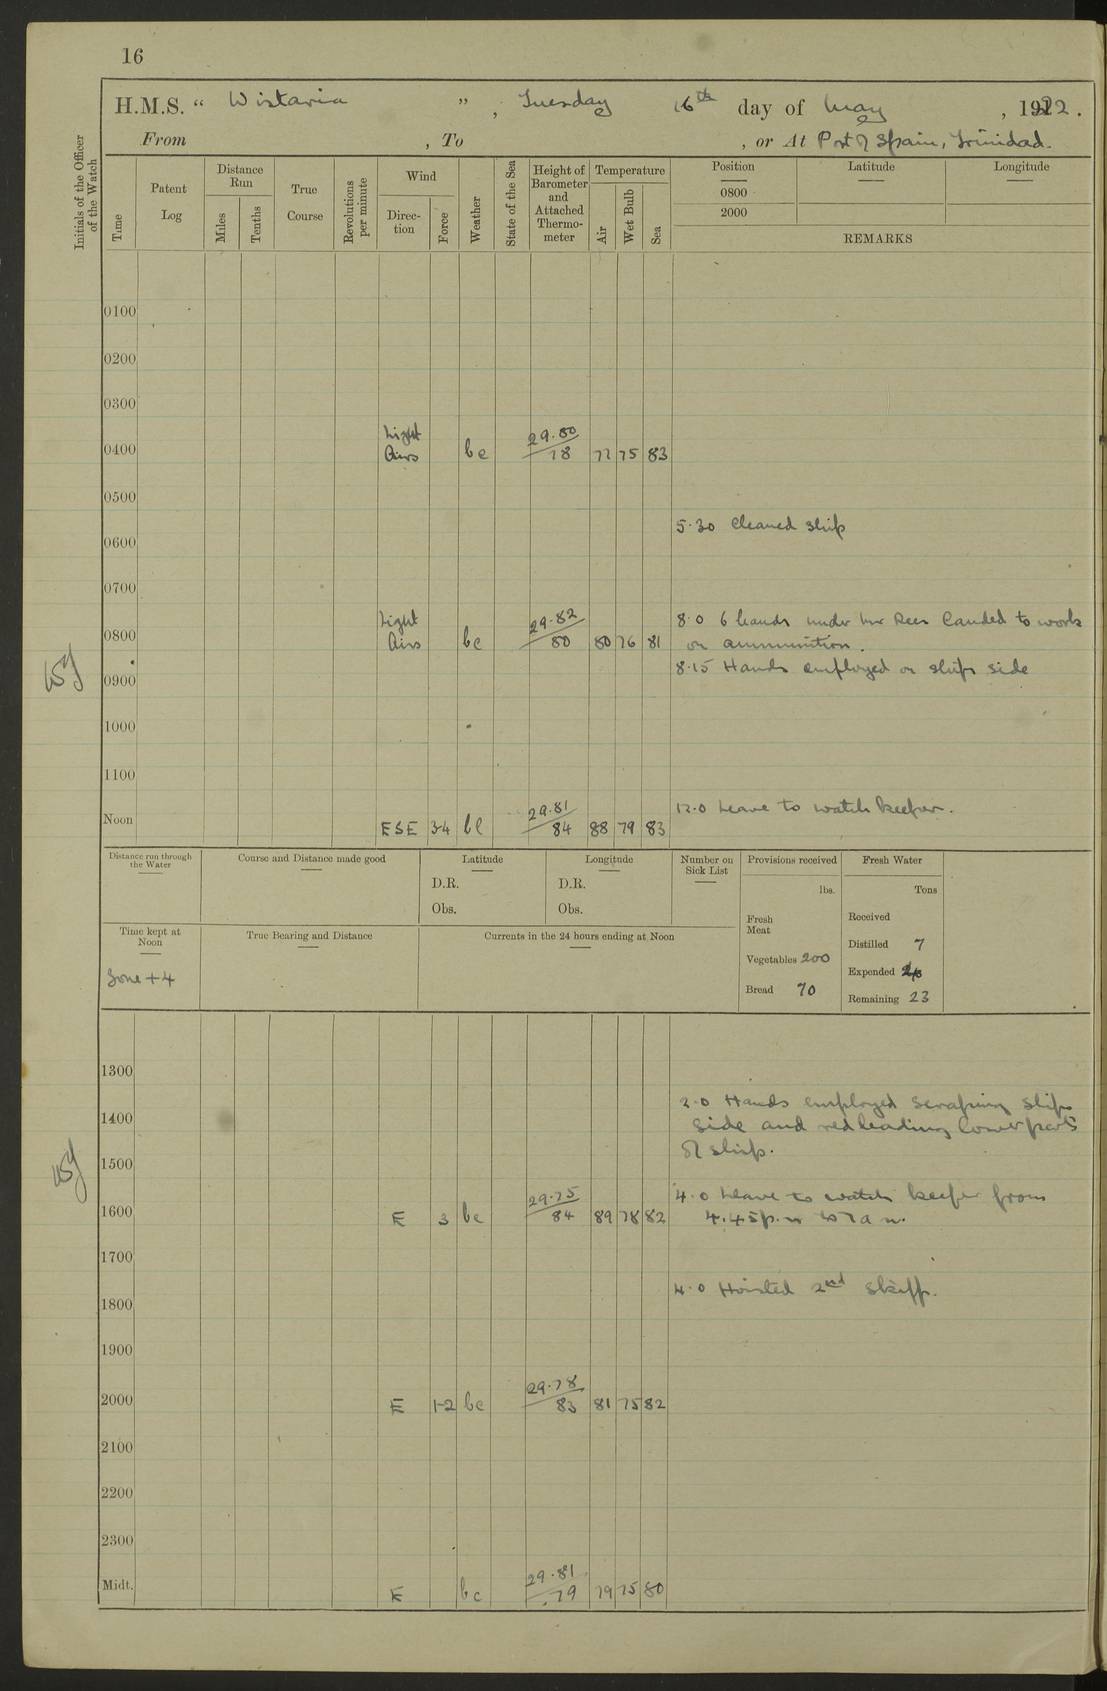 16
H.M.S. “ Wistaria ” , Tuesday 16th day of May , 1922 .
From , To , or At Port of Spain, Trinidad.
Initials of the Officer of the Watch
Time
Patent Log
Distance Run
Miles
Tenths
True Course
Revolutions per minute
Wind
Direc- tion
Force
Weather
State of the Sea
Height of Barometer and Attached Thermo- meter
Temperature
Air
Wet Bulb
Sea
Position Latitude Longitude
0800
2000
REMARKS
0100
0200
0300
0400 Light Airs bc 29.80 78 77 75 83
0500
5.30 Cleaned ship
0600
0700
8.0 6 hands under landed to work
0800 Light Airs bc 29.82 80 80 76 81
on ammunition.
8.15 Hands employed on ships side
0900
1000
1100
12.0 Leave to watch keeper.
Noon ESE 3-4 bc 29.81 84 88 79 83
Distance run through the Water
Course and Distance made good
Latitude
D.R.
Obs.
Longitude
D.R.
Obs.
Number on Sick List
Provisions received
lbs.
Fresh Meat
Vegetables 200
Bread 70
Fresh Water
Tons
Received
Distilled 7
Expended
Remaining 23
Time kept at Noon
Zone +4
True Bearing and Distance
Currents in the 24 hours ending at Noon
1300
2.0 Hands employed scraping ships
1400
side and redleading lower parts
of ship.
1500
4.0 Leave to watch keeper from
1600 E 3 bc 29.75 84 89 78 82
4.45 p.m to 7 a m.
1700
4.0 Hoisted 2nd skiff.
1800
1900
2000 E 1-2 bc 29.78 83 81 75 82
2100
2200
2300
Midt. E bc 29.81 79 79 75 80